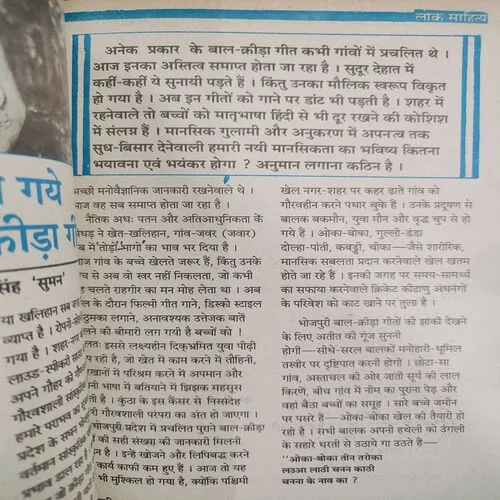 लोक साहित्य
अनेक प्रकार के बाल-क्रीड़ा गीत कभी गांवों में प्रचलित थे ।
आज इनका अस्तित्व समाप्त होता जा रहा है । सुदूर देहात में
कहीं-कहीं ये सुनायी पड़ते हैं । किंतु उनका मौलिक स्वरूप विकृत
हो गया है । अब इन गीतों को गाने पर डांट भी पड़ती है । शहर में
रहनेवाले तो बच्चों को मातृभाषा हिंदी से भी दूर रखने की कोशिश
में संलग्न हैं । मानसिक गुलामी और अनुकरण में अपनत्व तक
सुध-बिसार देनेवाली हमारी नयी मानसिकता का भविष्य कितना
भयावना एवं भयंकर होगा ? अनुमान लगाना कठिन है ।
गये
क्रीड़ा
सिंह 'सुमन'
या खलिहान सब
व्याप्त है ।
गया है । शहर-
लाउड-स्पीकरी
अपने गौहर की
गौरवशाली
हमारे पराभव का
प्रदेश के सभी
वर्तमान सांस्कृतिक
प्रभाव डाल रहा
अच्छी मनोवैज्ञानिक जानकारी रखनेवाले थे ।
आज वह सब समाप्त होता जा रहा है ।
नैतिक अधः पतन और अतिआधुनिकता के
ने खेत-खलिहान, गांव-जवार (जवार)
का भाव भर दिया है ।
आज गांव के बच्चे खेलते जरूर हैं, किंतु उनके
से अब वो स्वर नहीं निकलता, जो कभी
चलते राहगीर का मन मोह लेता था । अब
के दौरान फिल्मी गीत गाने, डिस्को स्टाइल
ठुमका लगाने, अनावश्यक उत्तेजक बातें
की बीमारी लग गयी है बच्चों को !
इससे लक्ष्यहीन दिकभ्रमित युवा पीढ़ी
रही है, जो खेत में काम करने में तौहिनी,
में परिश्रम करने में अपमान और
भाषा में बतियाने में झिझक महसूस
है । कुंठा के इस कैंसर से निस्संदेह
गौरवशाली परंपरा का अंत हो जाएगा ।
भोजपुरी प्रदेश में प्रचलित पुराने बाल-क्रीड़ा
की सही संख्या की जानकारी मिलनी
है । इन्हें खोजने और लिपिबद्ध करने
कार्य काफी कम हुए हैं । आज तो यह
भी मुश्किल हो गया है, क्योंकि पश्चिमी
खेल नगर-शहर पर कहर ढाते गांव को
गौरवहीन करने पधार चुके हैं । उनके प्रदूषण से
बालक बकमौन, युवा मौन और वृद्ध चुप से हो
गये हैं । ओका-बोका, गुल्ली-डंडा
दोल्हा-पांती, कबड्डी, चीका—जैसे शारीरिक,
मानसिक सबलता प्रदान करनेवाले खेल खतम
होते जा रहे हैं । इनकी जगह पर समय-सामर्थ्य
का सफाया करनेवाले क्रिकेट कीटाणु अंधनंगों
के परिवेश को काट खाने पर तुला है ।
भोजपुरी बाल-क्रीड़ा गीतों की झांकी देखने
के लिए अतीत की गूंज सुननी
होगी—सीधे-सरल बालकों मनोहारी-धूमिल
तस्वीर पर दृष्टिपात करनी होगी । छोटा-सा
गांव, अस्ताचल की ओर जाती सूर्य की लाल
किरणें, बीच गांव में नीम का पुराना पेड़ और
वहां बैठा बच्चों का समूह । सारे बच्चे जमीन
पर पसरे हैं—ओका-बोका खेल की तैयारी हो
रही है । सभी बालक अपनी हथेली को उंगली
के सहारे धरती से उठाये गा उठते हैं—
''ओका-बोका तीन तरोका
लउआ लाठी चनन काठी
चनना के नाव का ?